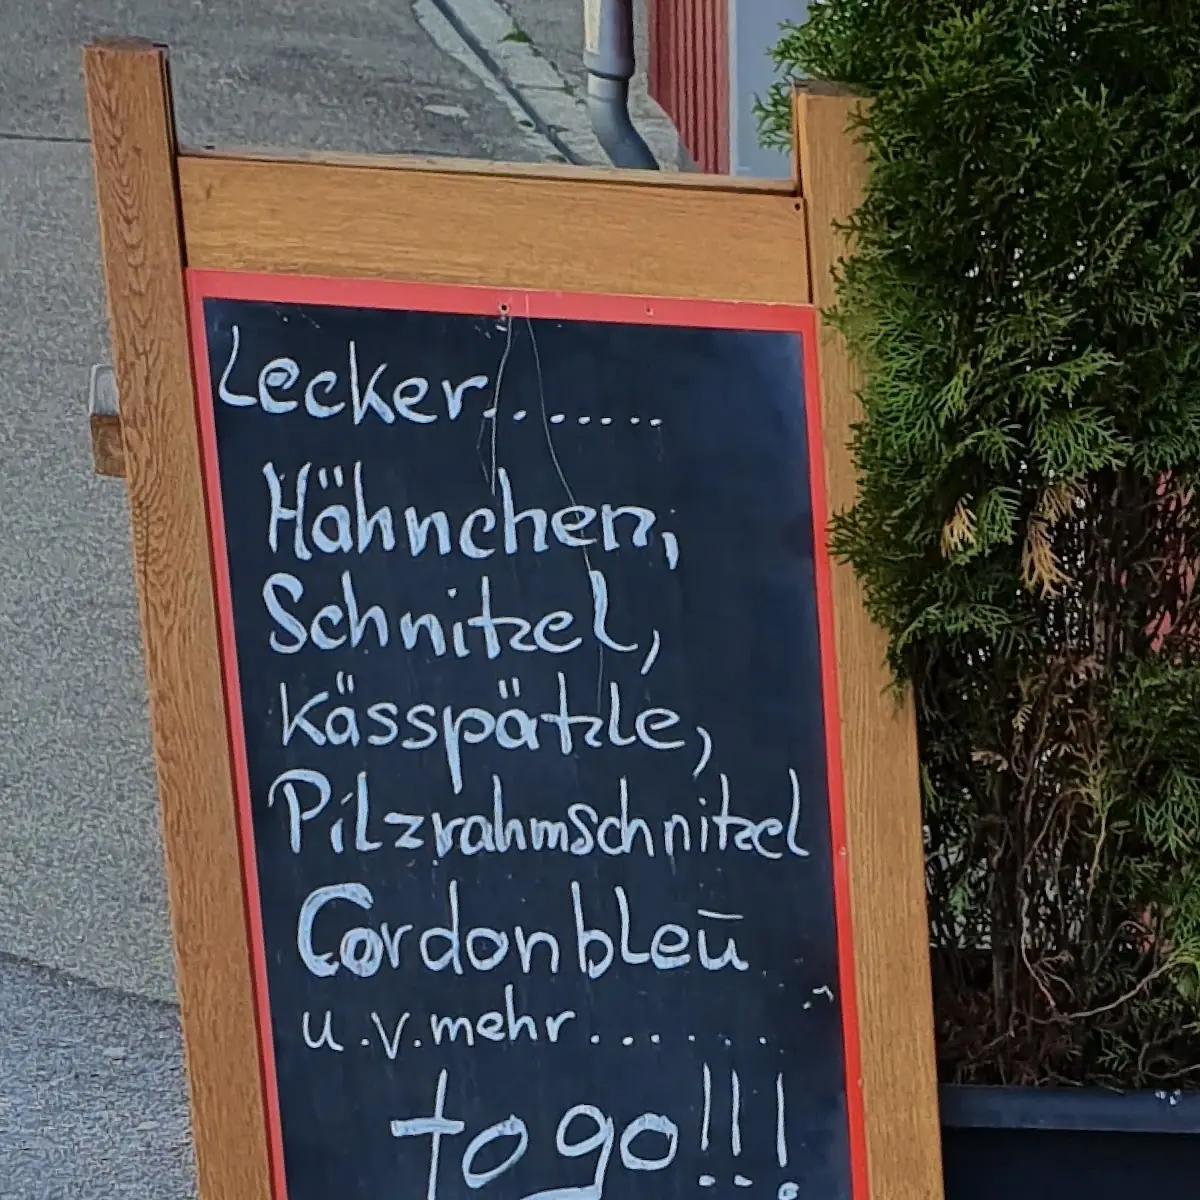 Lecker.......
Hähnchen,
Schnitzel,
Kässpätzle,
Pilzrahmschnitzel
Cordonbleū
u.v.mehr......
to go!!!